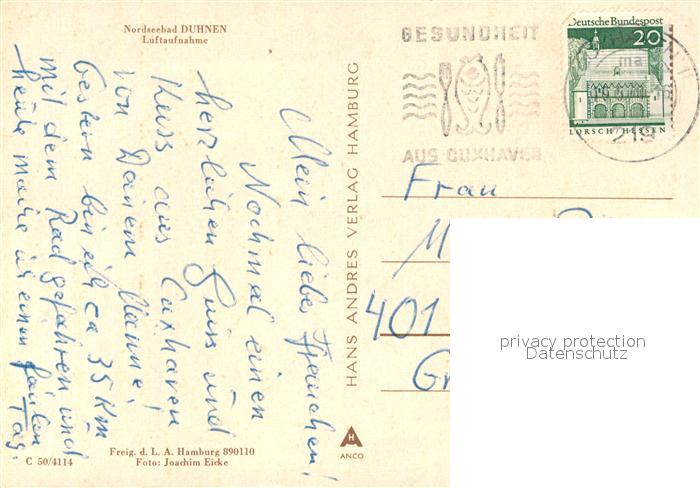 Nordseebad DUHNEN
Luftaufnahme
Mein liebes Frauchen!
Nochmal einen
herzlichen Gruss und
Kuss aus Cuxhaven
von Deinem Manne!
Gestern bin ich ca 35 Km
mit dem Rad gefahren und
heute mache ich einen faulen
Tag.
C 50/4114
Freig. d. L. A. Hamburg 890110
Foto: Joachim Eicke
HANS ANDRES VERLAG HAMBURG
H
ANCO
GESUNDHEIT
AUS CUXHAVEN
Deutsche Bundespost
20
LORSCH/HESSEN
219
Frau
401
privacy protection
Datenschutz